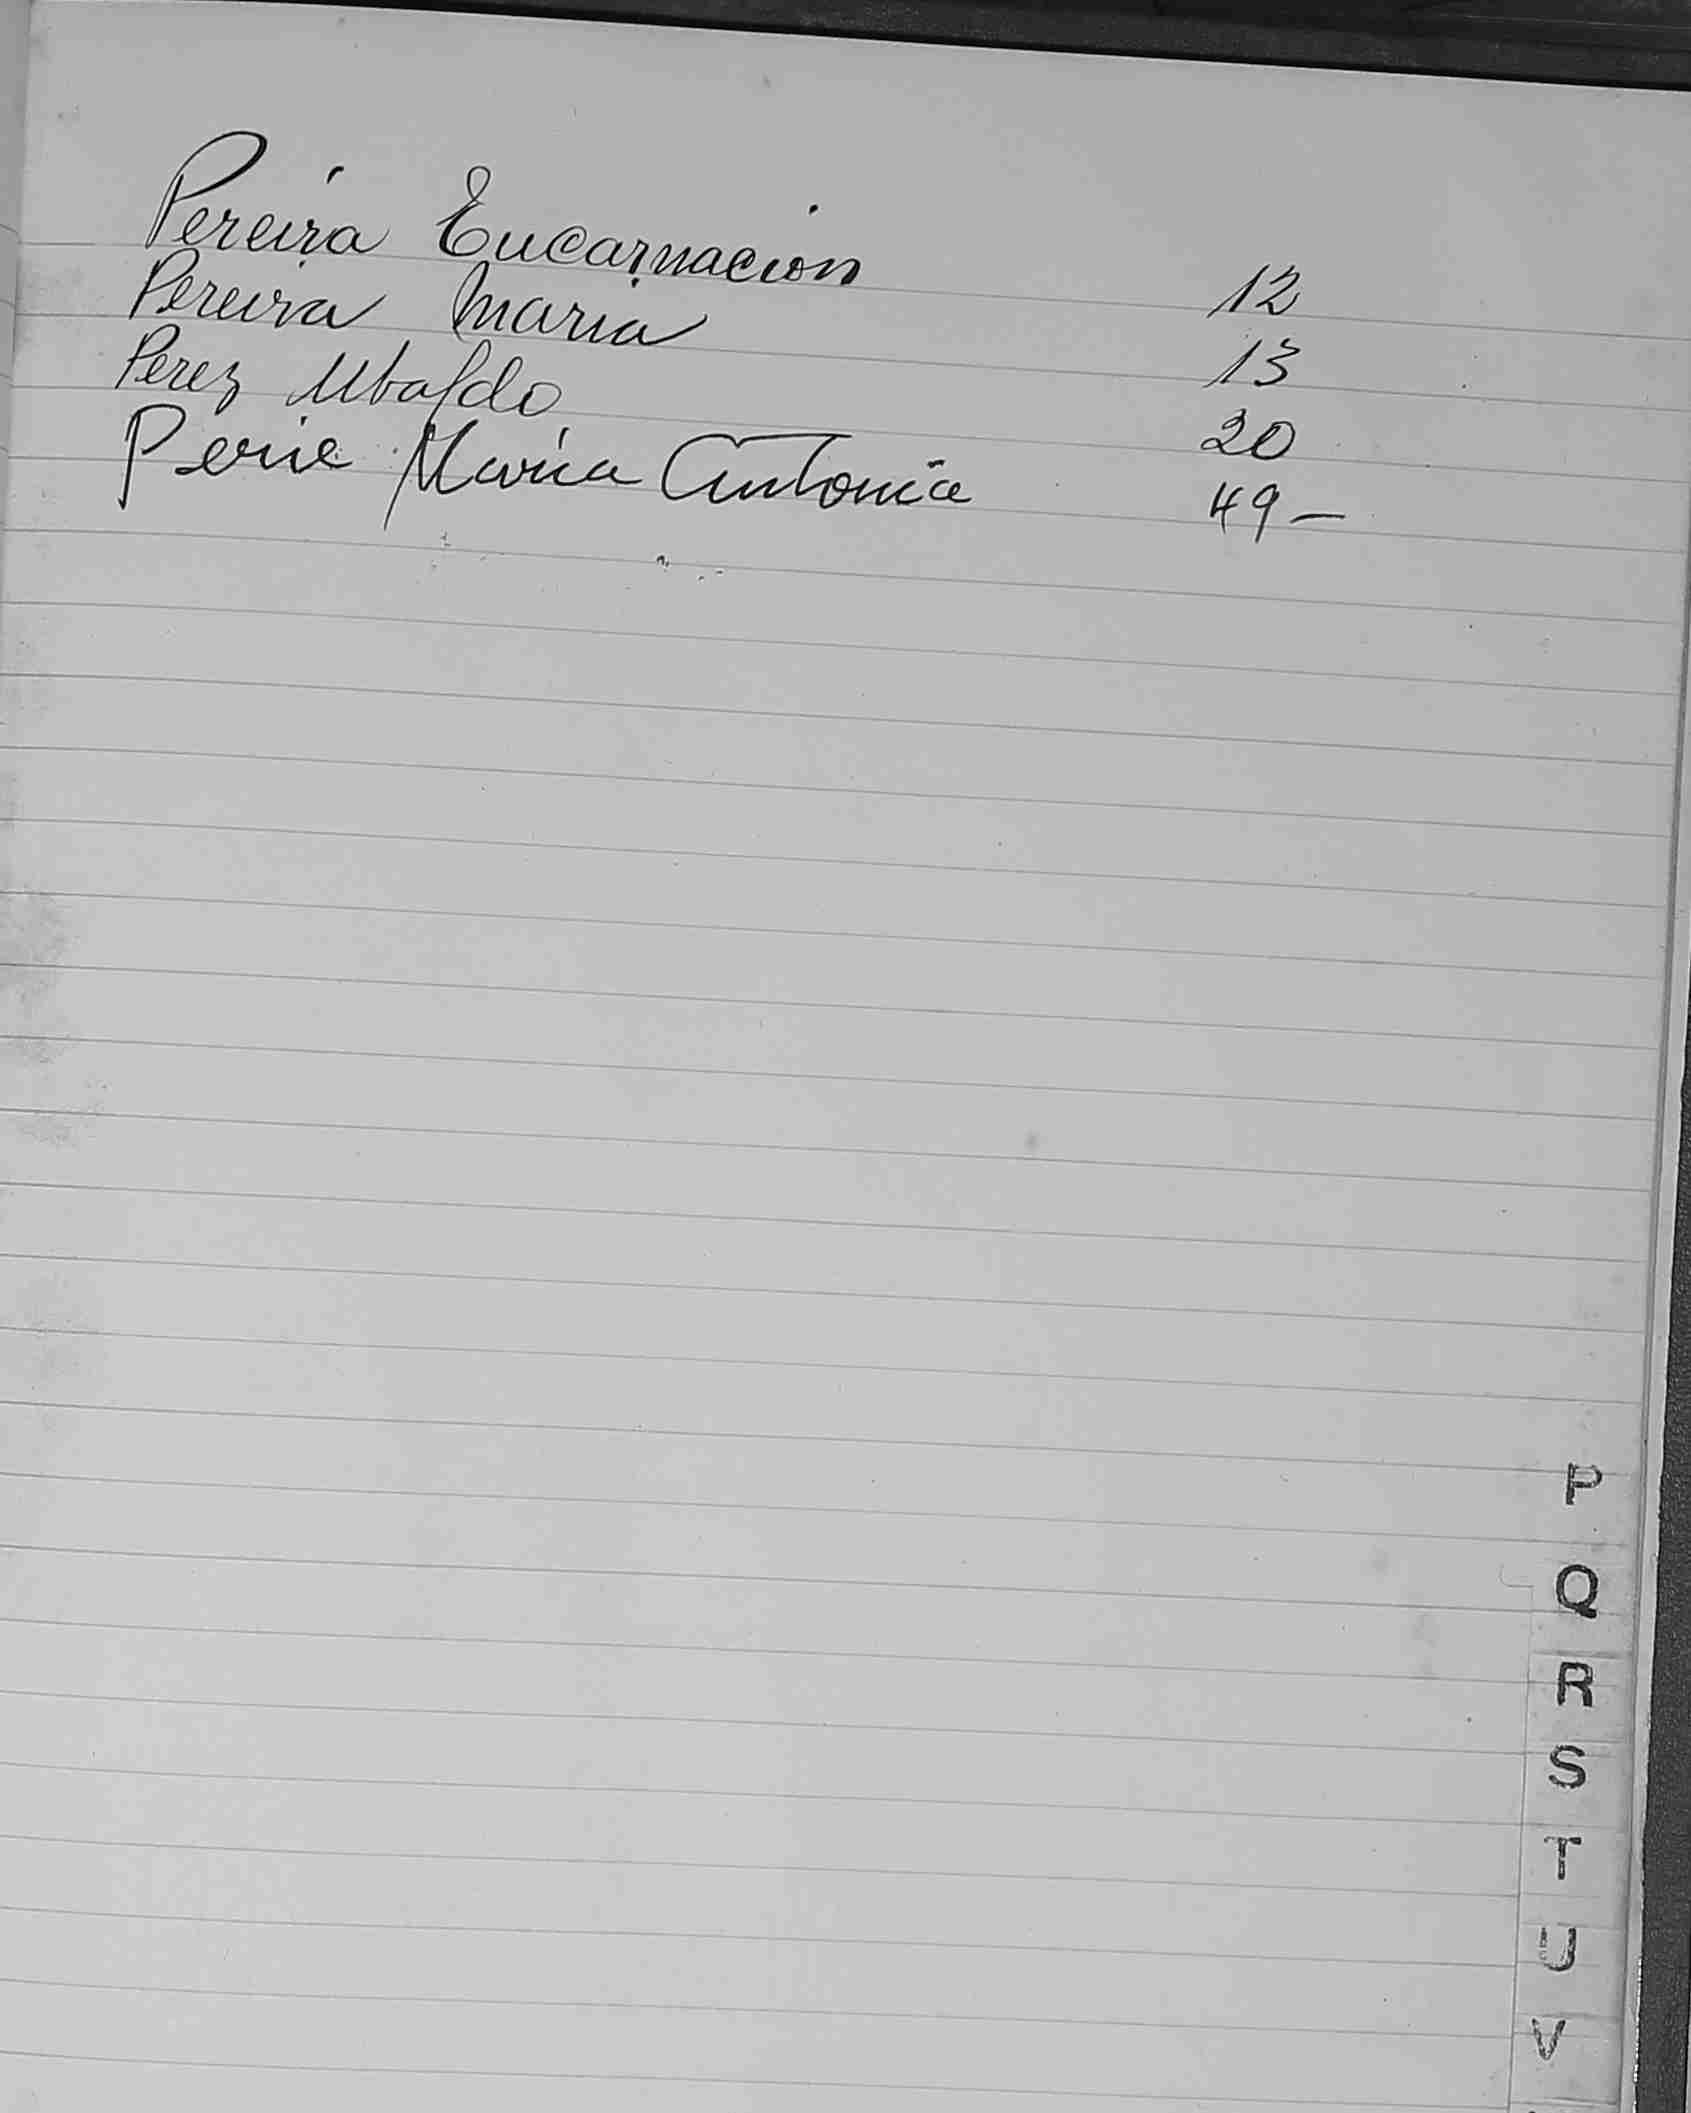 Pereira Encarnacion 12
Pereira Maria 13
Perez Ubaldo 20
Perie Maria Antonia 49 –
P
Q
R
S
T
U
V